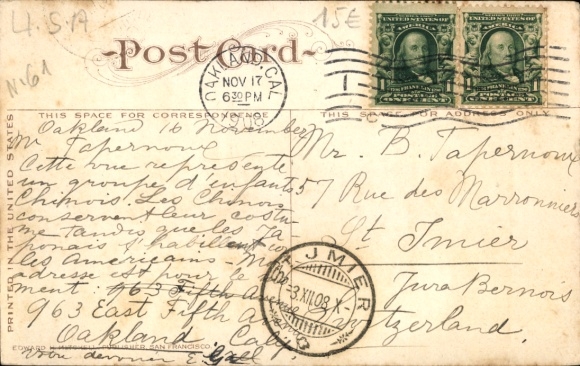 U.S.A
15€
No 61
Post Card
OAKLAND, CAL.
NOV 17
6 30 PM
1908
UNITED STATES OF AMERICA
UNITED STATES OF AMERICA
ONE CENT
ONE CENT
THIS SPACE FOR CORRESPONDENCE
THIS SPACE FOR ADDRESS ONLY
PRINTED IN THE UNITED STATES
Oakland 16 November
M Tapernoux
Cette vue représente
un groupe d'enfants
Chinois. Les Chinois
conservent leur costu-
me tandis que les Ja-
ponais s'habillent co
les Americains. M
adresse est pour le
ment: 963 Fifth A
963 East Fifth A
Oakland, Cal.
Votre dévoué E.
EDWARD H. MITCHELL, PUBLISHER, SAN FRANCISCO
Mr. B. Tapernoux
57 Rue des Marronniers
St Imier
Jura Bernois
Switzerland.
ST. IMIER
-3.XII.08.X-